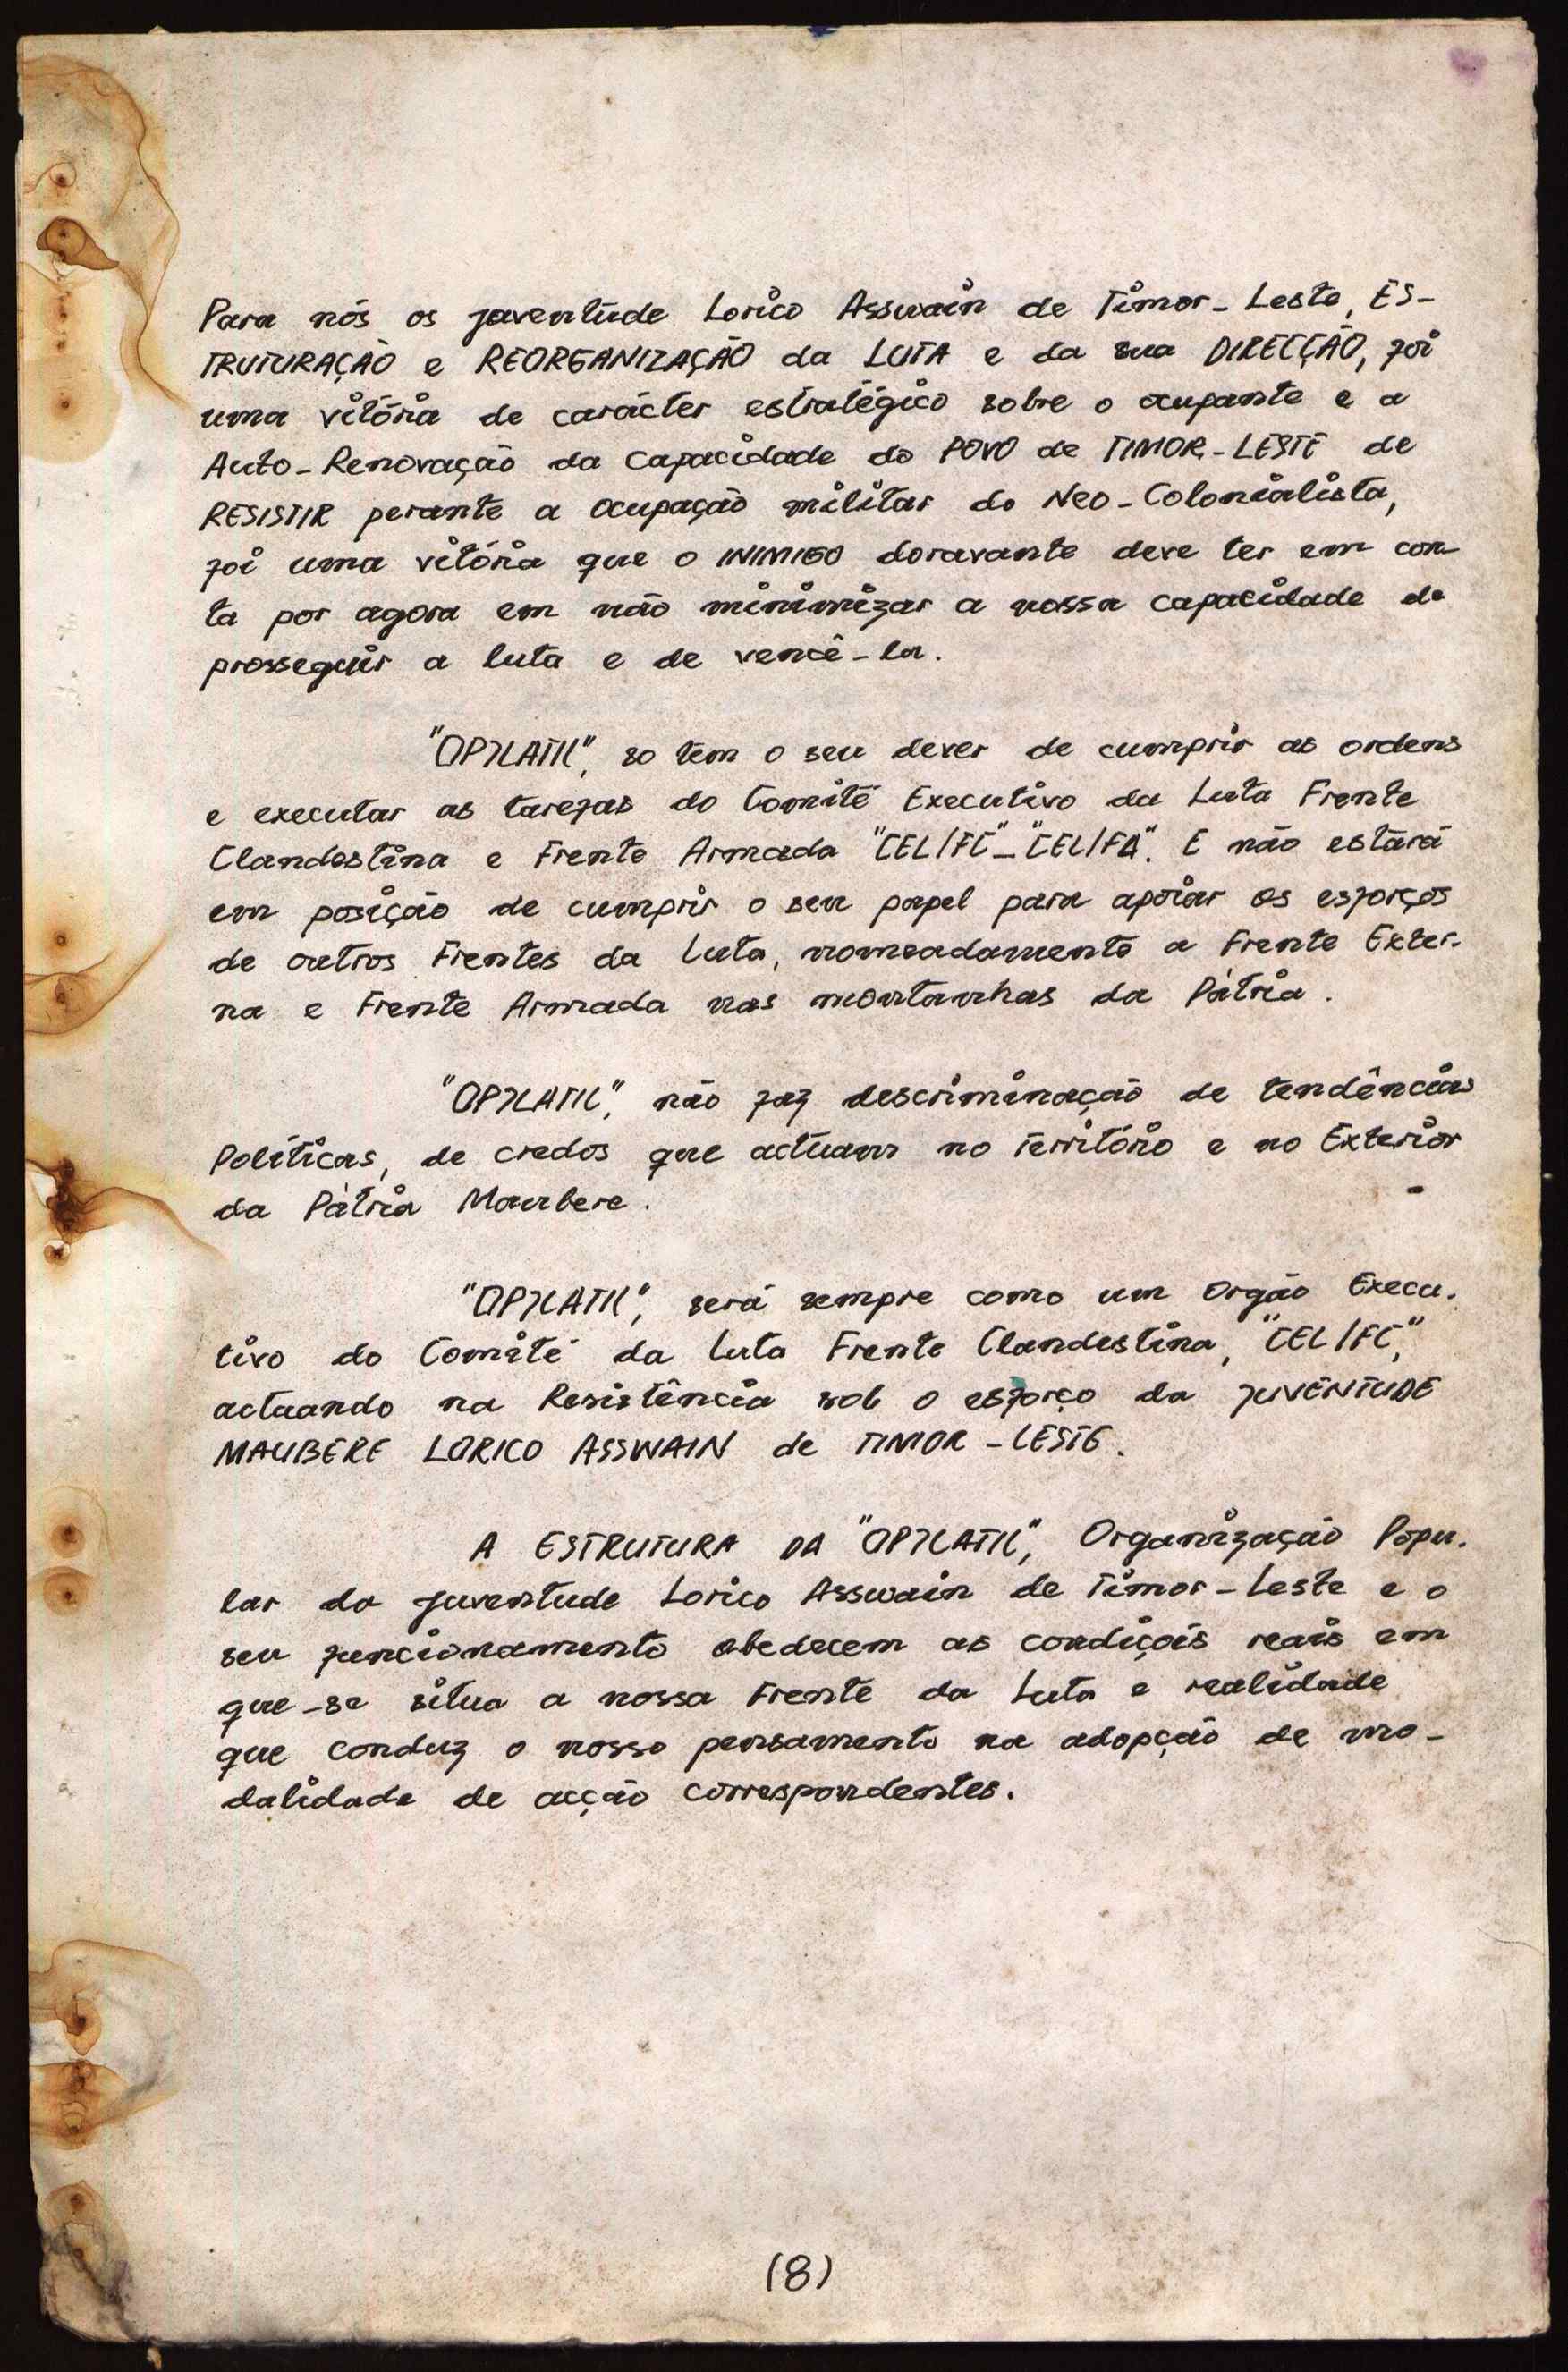 Para nós os juventude Lorico Asswain de Timor-Leste, ES-
TRUTURAÇÃO e REORGANIZAÇÃO da LUTA e da sua DIRECÇÃO, foi
uma vitória de carácter estratégico sobre o ocupante e a
Auto-Renovação da capacidade do POVO de TIMOR-LESTE de
RESISTIR perante a ocupação militar do Neo-Colonialista,
foi uma vitória que o INIMIGO doravante deve ter em con
ta por agora em não minimizar a nossa capacidade de
prosseguir a luta e de vencê-la.
"OPJLATIL", so tem o seu dever de cumprir as ordens
e executar as tarefas do Comité Executivo da Luta Frente
Clandestina e Frente Armada "CEL/FC"-"CEL/FA". E não estará
em posição de cumprir o seu papel para apoiar os esforços
de outros Frentes da Luta, nomeadamente a Frente Exter-
na e Frente Armada nas montanhas da Pátria.
"OPJLATIL", não faz descriminação de tendências
Políticas, de credos que actuam no território e no Exterior
da Pátria Maubere.
"OPJLATIL", será sempre como um Orgão Execu-
tivo do Comité da Luta Frente Clandestina, "CEL/FC",
actuando na Resistência sob o esforço da JUVENTUDE
MAUBERE LORICO ASSWAIN de TIMOR-LESTE.
A ESTRUTURA DA "OPJLATIL", Organização Popu-
lar da juventude Lorico Asswain de Timor-Leste e o
seu funcionamento obedecem as condiçois reais em
que-se situa a nossa Frente da Luta e realidade
que conduz o nosso pensamento na adopção de mo-
dalidade de acção correspondentes.
(8)